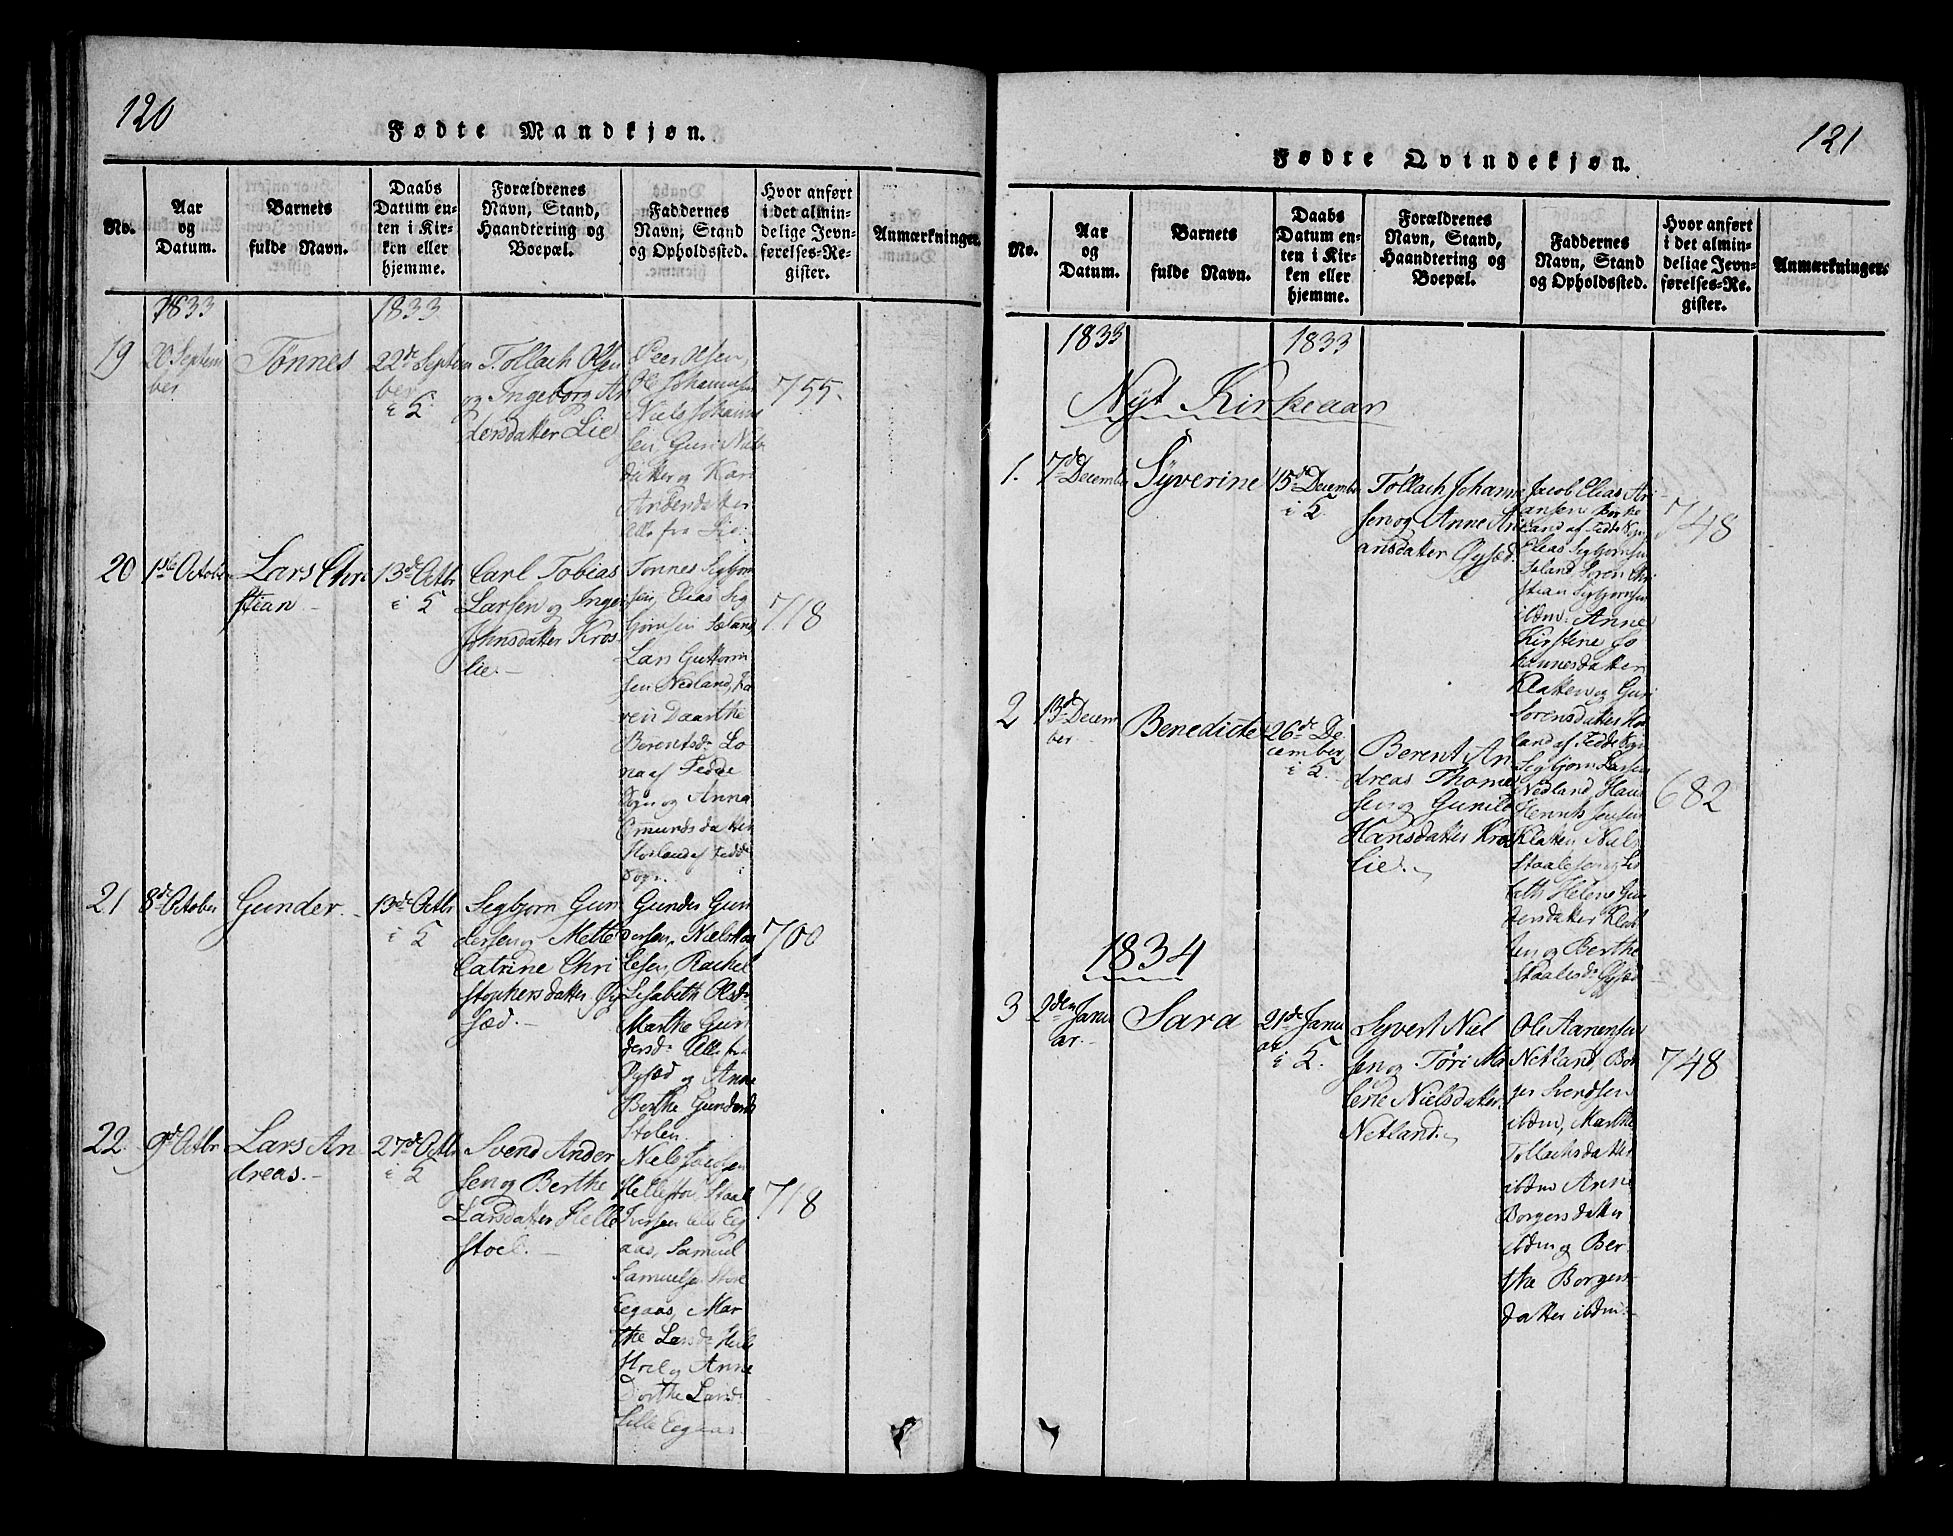 120
Fødte Mandkjøn.
No.
Aar
og
Datum.
Barnets
fulde Navn.
Daabs
Datum en-
ten i Kir-
ken eller
hjemme.
Forældrenes
Navn, Stand,
Haandtering og
Boepæl.
Faddernes
Navn, Stand
og Opholdssted.
Hvor anført
i det almin-
delige Jevn-
førelses-Re-
gister.
Anmærkninger.
1833
1833
19
20 Septem
ber
Tönnes
22de Septem
ber
i K
Tollach Olsen
og Ingeborg An
dersdatter Lie
Peer Olsen,
Ole Johannsen
Niels Johanne
sen Guri Niels
datter og Kari
Andersdatter
alle fra Lie.
755.
20
1ste October
Lars Chri
stian
13de Octbr
i K
Carl Tobias
Larsen og Inger
Johnsdatter Kros
lie.
Tonnes Segbjorn
sen, Elias Seg
bjornsen
Lars Guttorm
sen Nedland,
ren Daarthe
Berentsd.
af Fedde
Sogn og Anna
Omundsdatter
af Fedde
Sogn.
718
21
8de October
Gunder.
13de Octbr
i K
Segbjorn Gun
dersen og Mette
Catrine Chri
stophersdatter Øy
sæd.
Gunder Gun
dersen, Niels
Rachel
Lisabeth Olsd.
Marthe Gun
dersd. Alle fra
Øysæd og Anne
Berthe Gundersd.
Stolen.
700
22.
9de Octbr
Lars An
dreas.
27de Octbr
i K
Svend Ander
sen og Berthe
Larsdatter Helle
stoel.
Niels Jacobsen
Hellestoel, Staale
Iversen lille Eeg
aas, Samuel
Samuelsen Store
Eegaas, Mar
the Larsd. Helle
stoel og Anne
Dorthe Larsd.
Lille Eegaas.
718
121
Fødte Qvindekjøn.
No.
Aar
og
Datum.
Barnets
fulde Navn.
Daabs
Datum en-
ten i Kir-
ken eller
hjemme.
Forældrenes
Navn, Stand,
Haandtering og
Boepæl.
Faddernes
Navn, Stand
og Opholdssted.
Hvor anført
i det almin-
delige Jevn-
førelses-Re-
gister.
Anmærkninger.
1833
1833
Nyt Kirkeaar
1.
7de December
Syverine
15de Decembr
i K
Tollach Johanne
sen og Anne Ari
ansdatter Øysæd.
Jacob Elias Ari
ansen Birke
land af Fedde Sogn
Elias Segbjornsen
Soren Chri
stian Segbjornsen
ibdm. Anne
Kirstene Jo
hannesdatter
Klatten og Guri
Sorensdatter
land af Fedde Sogn
748
2
13de Decem
ber
Benedicte
26de De
cember
i K
Berent An
dreas Thomes
sen og Gunild
Hansdatter Kros
lie.
Segbjorn Larsen
Nedland, Hans
Henrik Jensen
Klatten Niels
Staalesen
Helene Gun
dersdatter Klat
ten og Berthe
Staalesd. Øysæd
682
1834
3
2den Janu
ar.
Sara
21de Janu
ar
i K.
Syvert Niel
sen og Tøri Ma
lene Nielsdatter
Netland.
Ole Aanensen
Netland, Bor
ger Svendsen
ibdm, Marthe
Tollachsdatter
ibdm Anne
Borgersdatter
ibdm og Ber
the Borgers
datter ibdm.
748